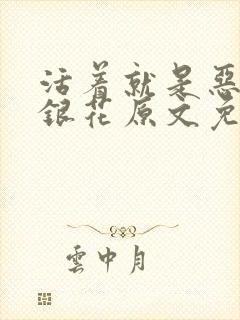 活着就是恶
银花原文免
云中月